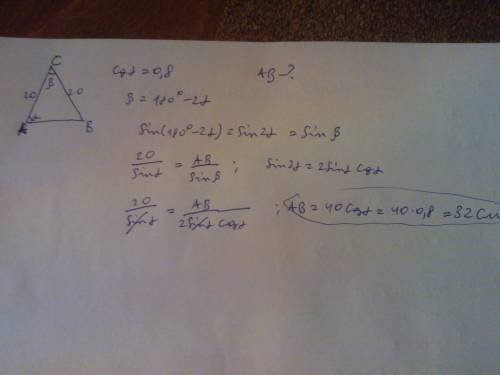 C
β
20 20
A α B
Cosα = 0,8 AB - ?
β = 180° - 2α
Sin(180° - 2α) = Sin2α = Sinβ
20/Sinα = AB/Sinβ ; Sin2α = 2Sinα Cosα
20/Sinα = AB/2Sinα Cosα ; AB = 40Cosα = 40·0,8 = 32см